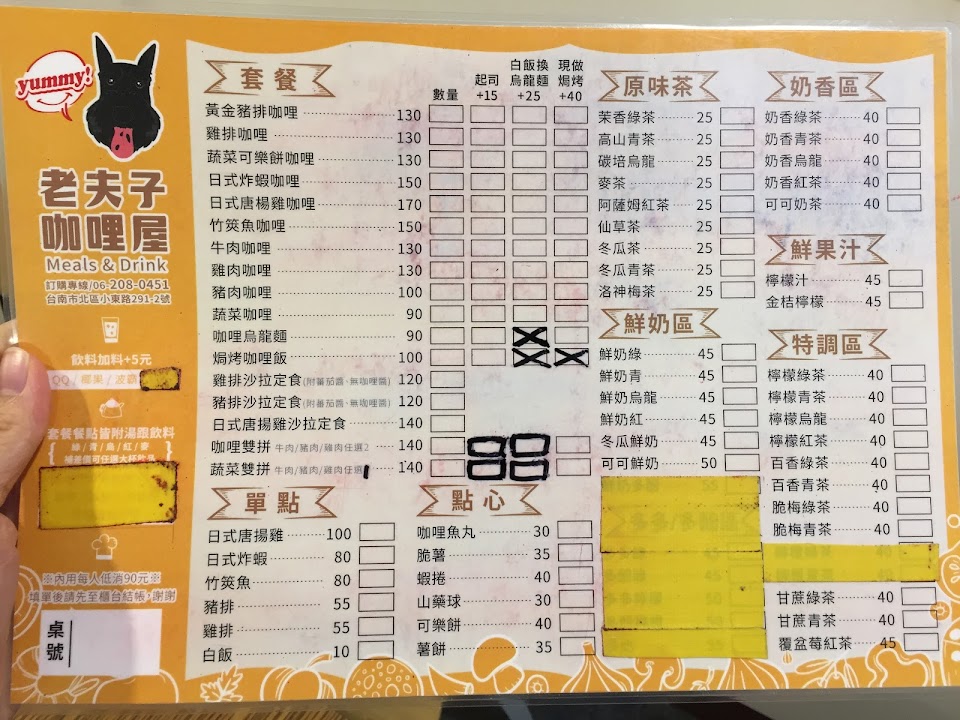 yummy!
老夫子
咖哩屋
Meals & Drink
訂購專線/06-208-0451
台南市北區小東路291-2號
飲料加料+5元
QQ / 椰果 / 波霸
套餐餐點皆附湯跟飲料
綠 / 青 / 烏 / 紅 / 麥
補差價可任選大杯飲品
※內用每人低消90元※
填單後請先至櫃台結帳,謝謝
桌號
套餐
數量
起司
+15
白飯換
烏龍麵
+25
現做
焗烤
+40
黃金豬排咖哩 130
雞排咖哩 130
蔬菜可樂餅咖哩 130
日式炸蝦咖哩 150
日式唐楊雞咖哩 170
竹筴魚咖哩 150
牛肉咖哩 130
雞肉咖哩 130
豬肉咖哩 100
蔬菜咖哩 90
咖哩烏龍麵 90
焗烤咖哩飯 100
雞排沙拉定食(附蕃茄醬‧無咖哩醬) 120
豬排沙拉定食(附蕃茄醬‧無咖哩醬) 120
日式唐揚雞沙拉定食 140
咖哩雙拼 牛肉/豬肉/雞肉任選2 140
蔬菜雙拼 牛肉/豬肉/雞肉任選1 140
單點
日式唐揚雞 100
日式炸蝦 80
竹筴魚 80
豬排 55
雞排 55
白飯 10
點心
咖哩魚丸 30
脆薯 35
蝦捲 40
山藥球 30
可樂餅 40
薯餅 35
原味茶
茉香綠茶 25
高山青茶 25
碳培烏龍 25
麥茶 25
阿薩姆紅茶 25
仙草茶 25
冬瓜茶 25
冬瓜青茶 25
洛神梅茶 25
鮮奶區
鮮奶綠 45
鮮奶青 45
鮮奶烏龍 45
鮮奶紅 45
冬瓜鮮奶 45
可可鮮奶 50
奶香區
奶香綠茶 40
奶香青茶 40
奶香烏龍 40
奶香紅茶 40
可可奶茶 40
鮮果汁
檸檬汁 45
金桔檸檬 45
特調區
檸檬綠茶 40
檸檬青茶 40
檸檬烏龍 40
檸檬紅茶 40
百香綠茶 40
百香青茶 40
脆梅綠茶 40
脆梅青茶 40
甘蔗綠茶 40
甘蔗青茶 40
覆盆莓紅茶 45